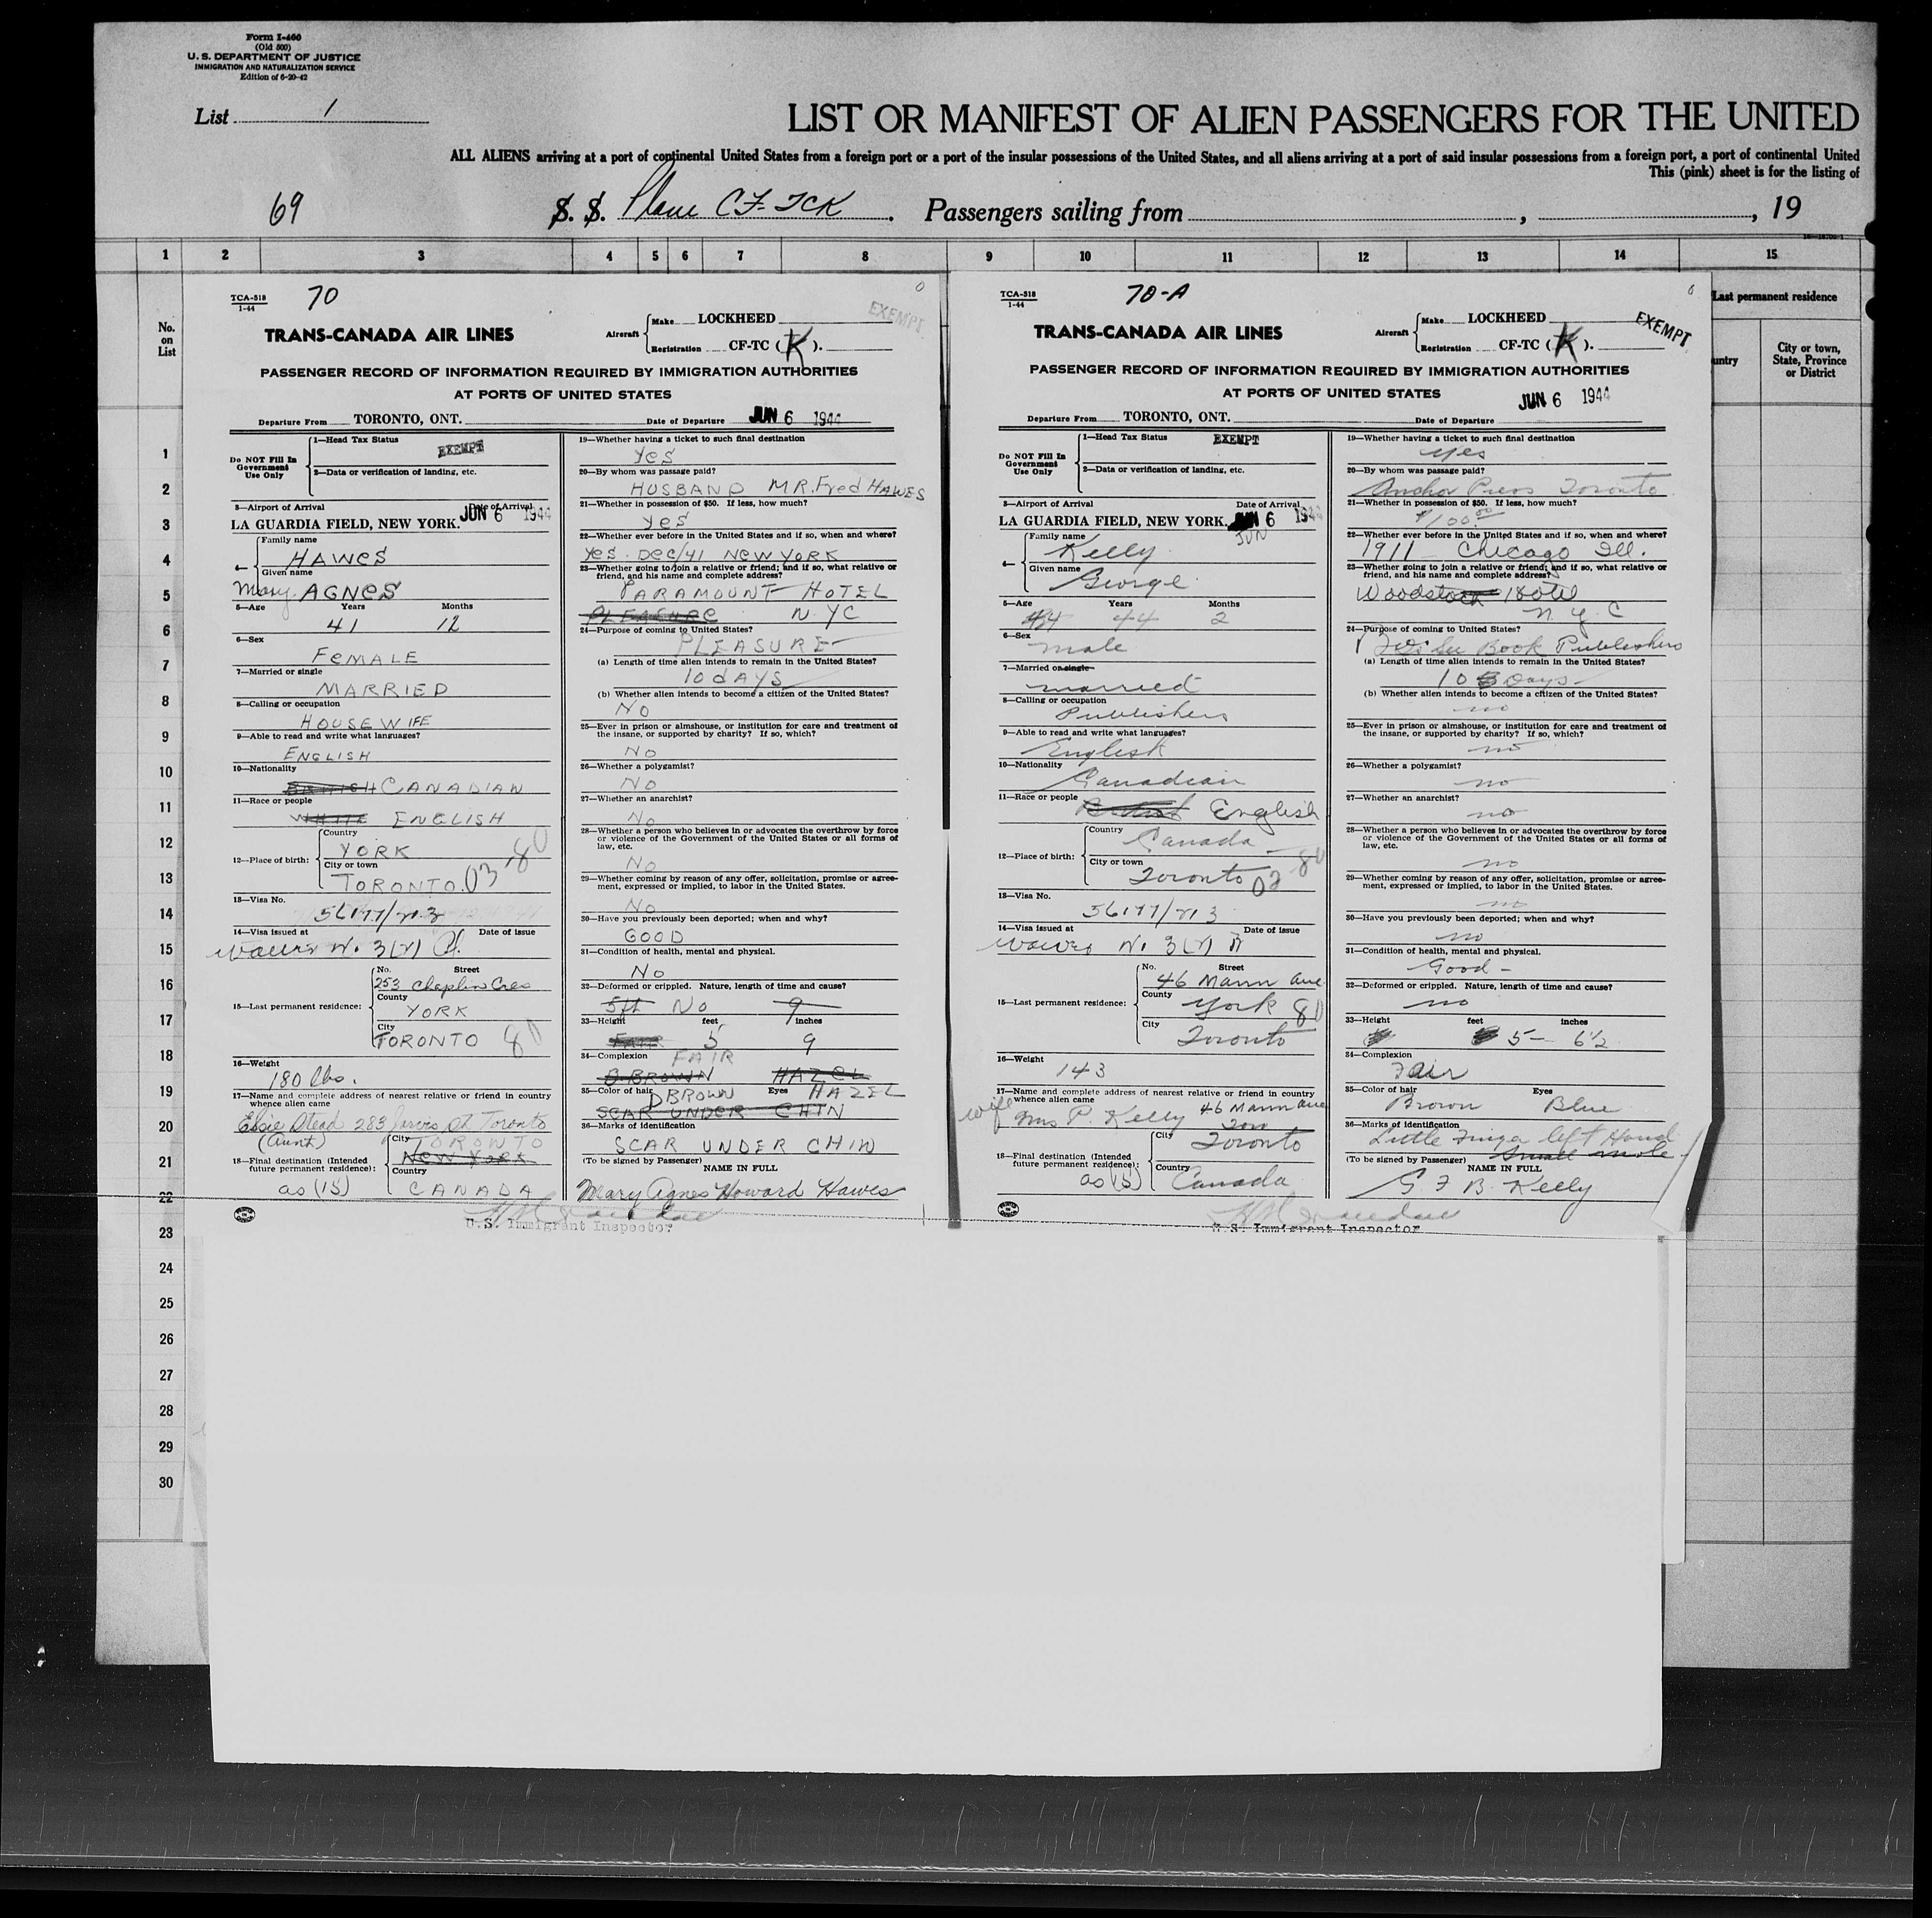 Form I-460
(Old 500)
U. S. DEPARTMENT OF JUSTICE
IMMIGRATION AND NATURALIZATION SERVICE
Edition of 6-20-42
List 1
LIST OR MANIFEST OF ALIEN PASSENGERS FOR THE UNITED
ALL ALIENS arriving at a port of continental United States from a foreign port or a port of the insular possessions of the United States, and all aliens arriving at a port of said insular possessions from a foreign port, a port of continental United
This (pink) sheet is for the listing of
69
S. S. Plane CF-TCK. Passengers sailing from , , 19
1 2 3 4 5 6 7 8 9 10 11 12 13 14 15
No.
on
List
Last permanent residence
untry
City or town,
State, Province
or District
1
2
3
4
5
6
7
8
9
10
11
12
13
14
15
16
17
18
19
20
21
22
23
24
25
26
27
28
29
30
TCA-518
1-44
70
EXEMPT
TRANS-CANADA AIR LINES
Aircraft
Make LOCKHEED
Registration CF-TC (K).
PASSENGER RECORD OF INFORMATION REQUIRED BY IMMIGRATION AUTHORITIES
AT PORTS OF UNITED STATES
Departure From TORONTO, ONT. Date of Departure JUN 6 1944
Do NOT Fill In
Government
Use Only
1—Head Tax Status EXEMPT
2—Data or verification of landing, etc.
3—Airport of Arrival Date of Arrival
LA GUARDIA FIELD, NEW YORK. JUN 6 1944
4—
Family name
HAWES
Given name
Mary AGNES
5—Age Years Months
41 12
6—Sex
FEMALE
7—Married or single
MARRIED
8—Calling or occupation
HOUSEWIFE
9—Able to read and write what languages?
ENGLISH
10—Nationality
BRITISH CANADIAN
11—Race or people
WHITE ENGLISH
12—Place of birth:
Country
YORK
City or town
TORONTO 03-80
13—Visa No.
14—Visa issued at Date of issue
15—Last permanent residence:
No. Street
253 Chaplin Cres
County
YORK
City
TORONTO 80
16—Weight
180 lbs.
17—Name and complete address of nearest relative or friend in country
whence alien came
Elsie Stead 283 Jarvis St Toronto
(Aunt)
18—Final destination (Intended
future permanent residence):
as (15)
City TORONTO
NEW YORK
Country
CANADA
19—Whether having a ticket to such final destination
Yes
20—By whom was passage paid?
HUSBAND MR. Fred HAWES
21—Whether in possession of $50. If less, how much?
Yes
22—Whether ever before in the United States and if so, when and where?
Yes. Dec/41 NEW YORK
23—Whether going to join a relative or friend; and if so, what relative or
friend, and his name and complete address?
PARAMOUNT HOTEL
PLEASURE NYC
24—Purpose of coming to United States?
PLEASURE
(a) Length of time alien intends to remain in the United States?
10 days
(b) Whether alien intends to become a citizen of the United States?
No
25—Ever in prison or almshouse, or institution for care and treatment of
the insane, or supported by charity? If so, which?
No
26—Whether a polygamist?
No
27—Whether an anarchist?
No
28—Whether a person who believes in or advocates the overthrow by force
or violence of the Government of the United States or all forms of
law, etc.
No
29—Whether coming by reason of any offer, solicitation, promise or agree-
ment, expressed or implied, to labor in the United States.
No
30—Have you previously been deported; when and why?
GOOD
31—Condition of health, mental and physical.
No
32—Deformed or crippled. Nature, length of time and cause?
5ft No 9
33—Height feet inches
FAIR 5 9
34—Complexion FAIR
D-BROWN HAZEL
35—Color of hair DBROWN Eyes HAZEL
SCAR UNDER CHIN
36—Marks of identification
SCAR UNDER CHIN
(To be signed by Passenger) NAME IN FULL
Mary Agnes Howard Hawes
U.S. Immigrant Inspector
TCA-518
1-44
70-A
EXEMPT
TRANS-CANADA AIR LINES
Aircraft
Make LOCKHEED
Registration CF-TC (K).
PASSENGER RECORD OF INFORMATION REQUIRED BY IMMIGRATION AUTHORITIES
AT PORTS OF UNITED STATES
JUN 6 1944
Departure From TORONTO, ONT. Date of Departure
Do NOT Fill In
Government
Use Only
1—Head Tax Status EXEMPT
2—Data or verification of landing, etc.
3—Airport of Arrival Date of Arrival
LA GUARDIA FIELD, NEW YORK. JUN 6 1944
JUN
4—
Family name
Kelly
Given name
George
5—Age Years Months
44 44 2
6—Sex
male
7—Married or single
married
8—Calling or occupation
Publishers
9—Able to read and write what languages?
English
10—Nationality
Canadian
11—Race or people
English
12—Place of birth:
Country
Canada
City or town
Toronto 80
13—Visa No.
14—Visa issued at Date of issue
15—Last permanent residence:
No. Street
46 Mann Ave
County
York 80
City
Toronto
16—Weight
143
17—Name and complete address of nearest relative or friend in country
whence alien came
wife Mrs P. Kelly 46 Mann Ave
Tor
18—Final destination (Intended
future permanent residence):
as (15)
City
Toronto
Country
Canada
19—Whether having a ticket to such final destination
yes
20—By whom was passage paid?
Anchor Press Toronto
21—Whether in possession of $50. If less, how much?
$100.00
22—Whether ever before in the United States and if so, when and where?
1911 Chicago Ill.
23—Whether going to join a relative or friend; and if so, what relative or
friend, and his name and complete address?
Woodstock Hotel
N.Y.C
24—Purpose of coming to United States?
Book Publishers
(a) Length of time alien intends to remain in the United States?
10 Days
(b) Whether alien intends to become a citizen of the United States?
no
25—Ever in prison or almshouse, or institution for care and treatment of
the insane, or supported by charity? If so, which?
no
26—Whether a polygamist?
no
27—Whether an anarchist?
no
28—Whether a person who believes in or advocates the overthrow by force
or violence of the Government of the United States or all forms of
law, etc.
no
29—Whether coming by reason of any offer, solicitation, promise or agree-
ment, expressed or implied, to labor in the United States.
no
30—Have you previously been deported; when and why?
no
31—Condition of health, mental and physical.
Good -
32—Deformed or crippled. Nature, length of time and cause?
no
33—Height feet inches
5- 6½
34—Complexion
Fair
35—Color of hair Eyes
Brown Blue
36—Marks of identification
Little Finger left Hand
Small mole
(To be signed by Passenger) NAME IN FULL
G F B. Kelly
U.S. Immigrant Inspector